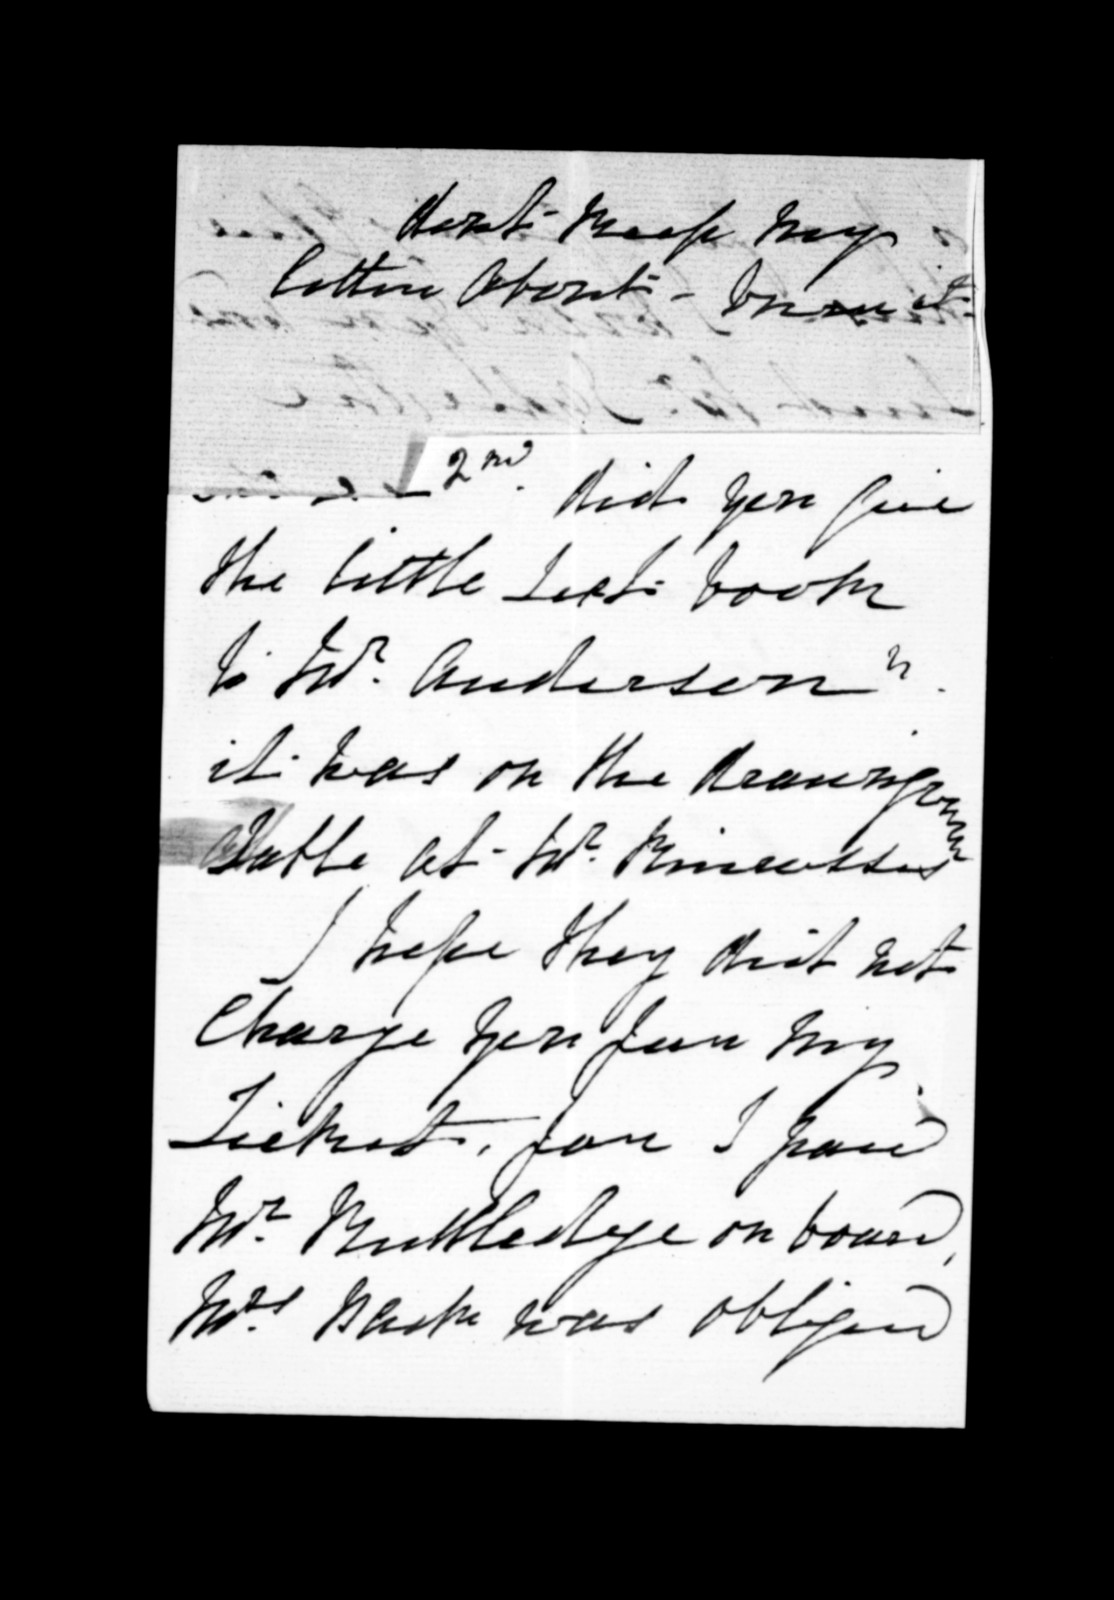 dont keep my
letter about - burn it
2nd. did you give
the little text book
to Mr. Anderson?
it was on the drawingroom
table at Mr.
I hope they did not
charge you for my
Ticket, for I paid
Mr. Ruttledge on board,
Mrs. Back was obliged